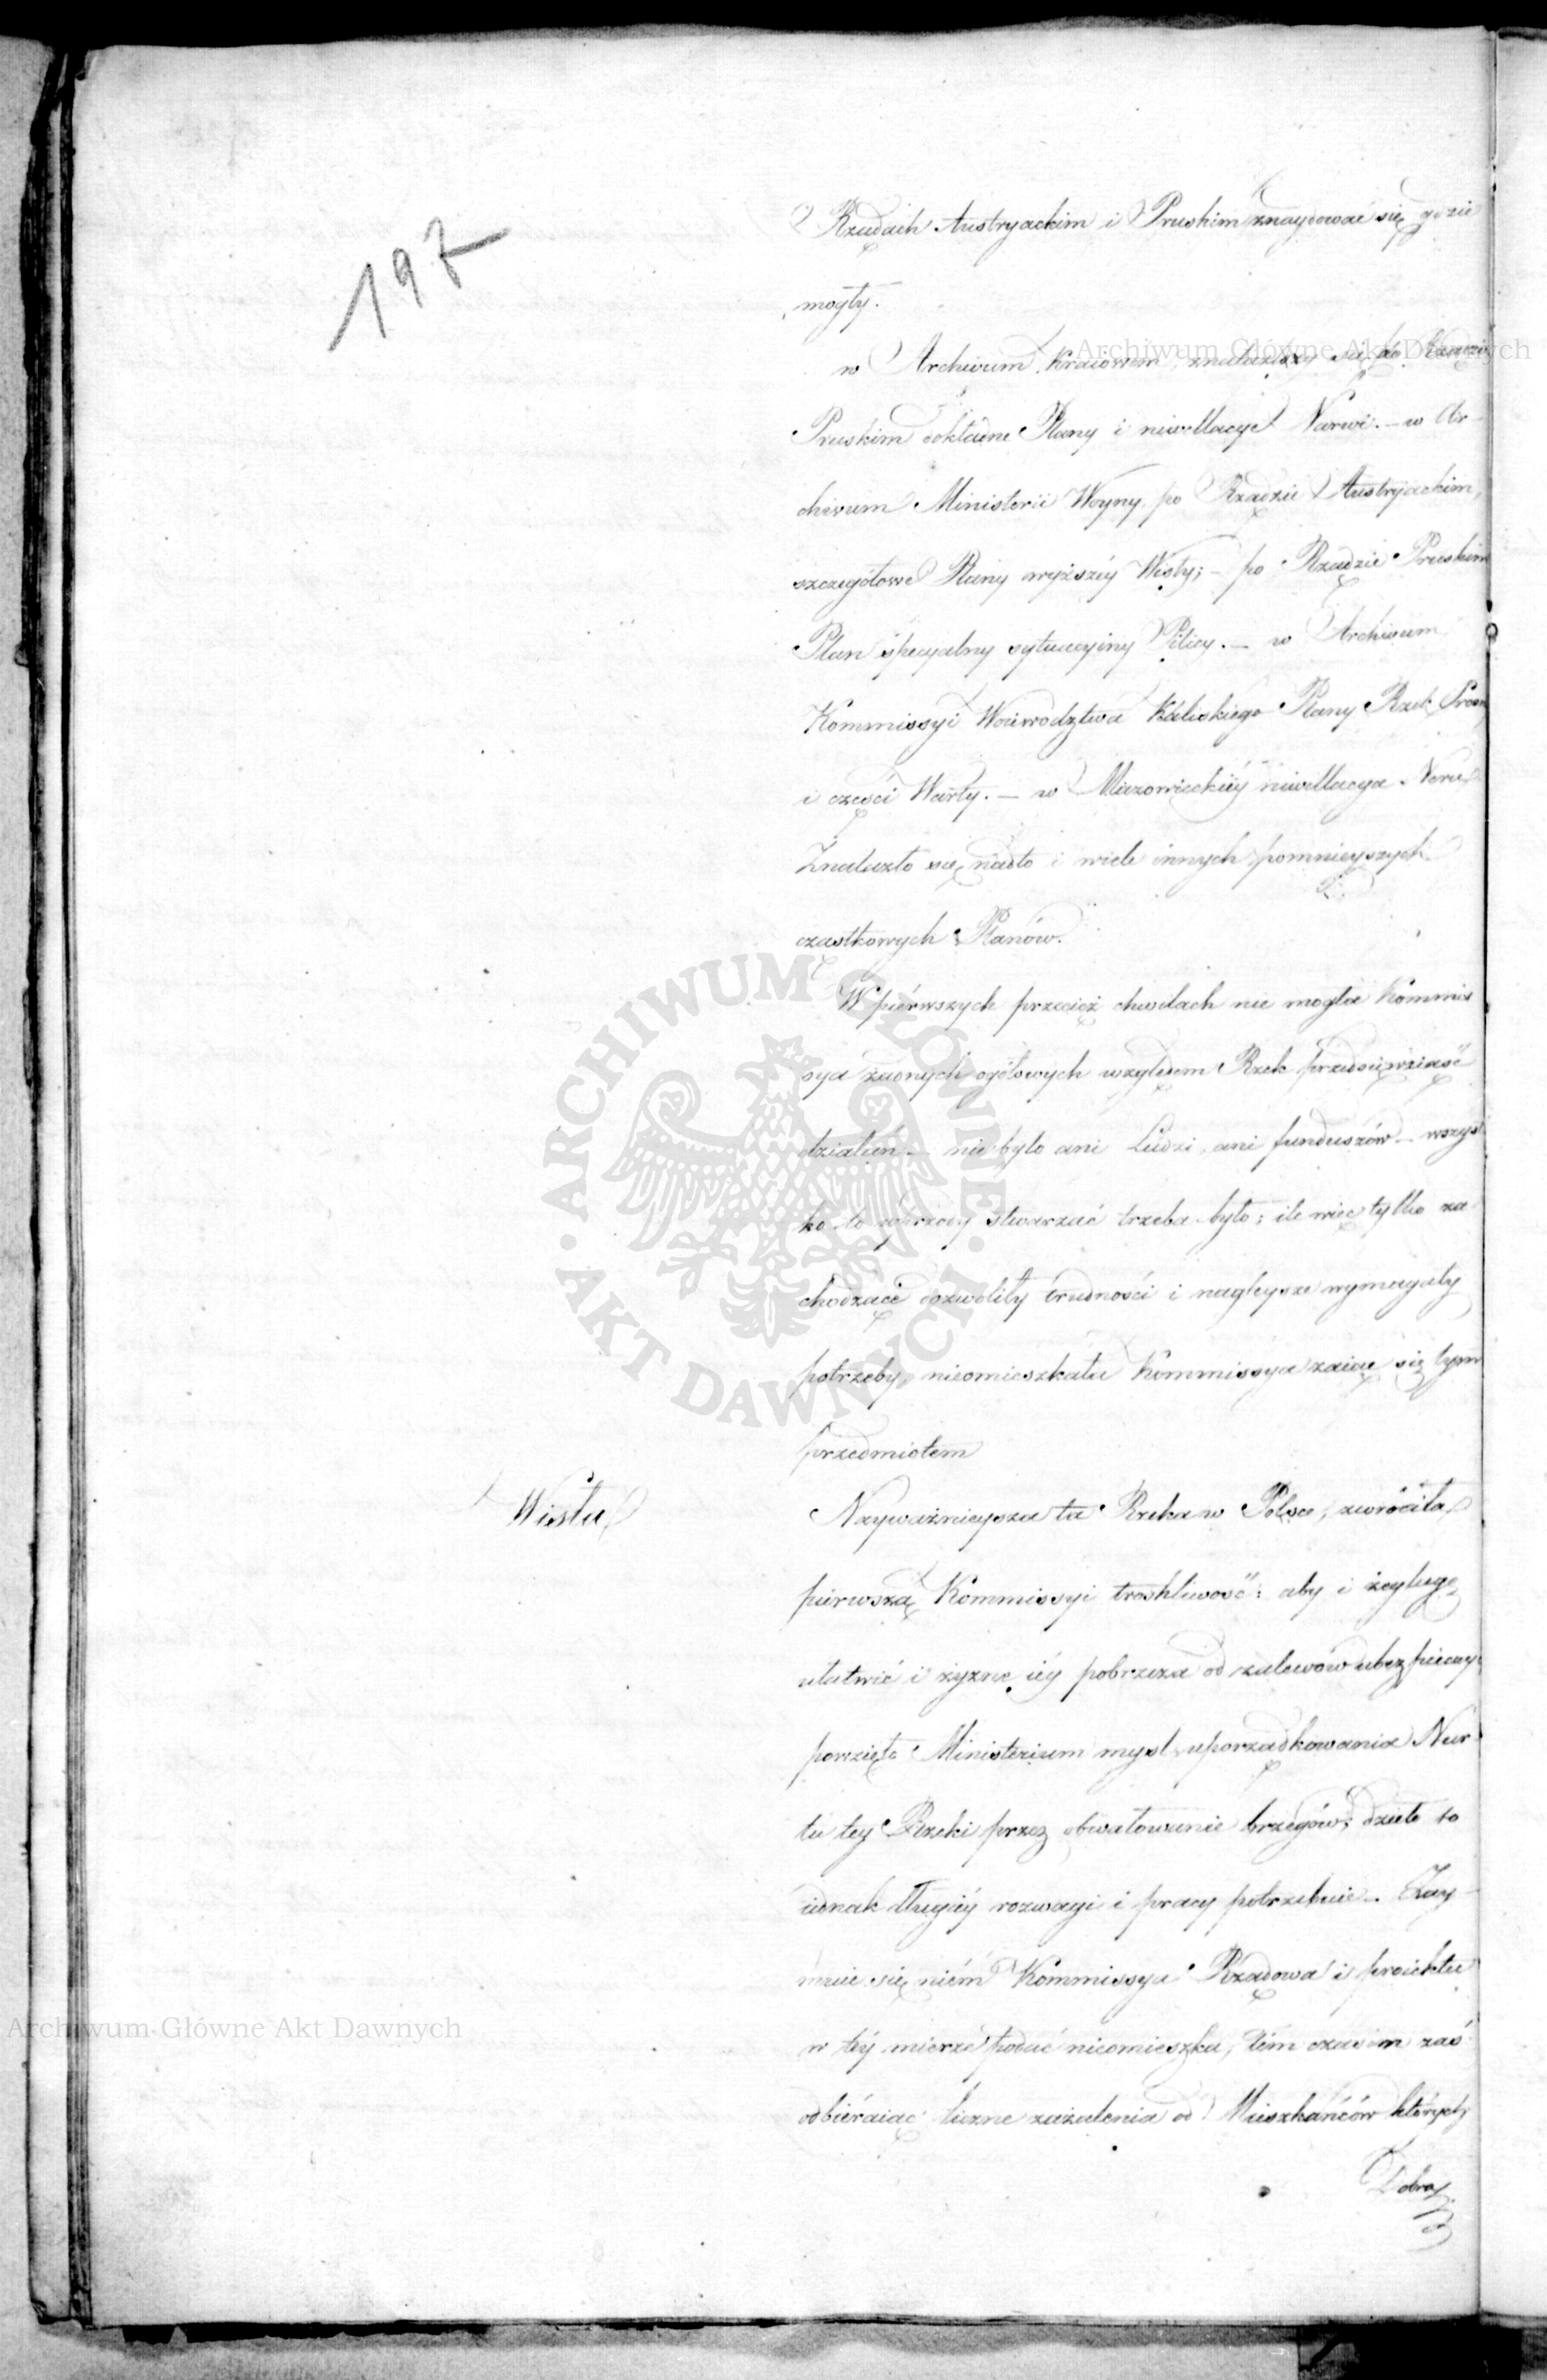 197
Rządach Austryackim i Pruskim znaydować się gdzie
mogły.
w Archivum Kraiowem, znalazły się po Rządzie
Pruskim dokładne Plany i niwellacye Narwi. – w Ar-
chivum Ministerii Woyny po Rządzie Austryackim,
szczegółowe Plany wyższéy Wisły; – po Rządzie Pruskim
Plan specyalny sytuacyiny Pilicy. – w Archivum
Kommissyi Woiewodztwa Kaliskiego Plany Rzek Prosny
i części Warty. – w Mazowieckiéy niwellacya Neru
Znalazło się nadto i wiele innych pomnieyszych
cząstkowych Planów.
W piérwszych przecięż chwilach nie mogła Kommis
sya żadnych ogółowych względem Rzek przedsięwziąść
działań – nie było ani Ludzi, ani funduszów – wszyst
ko to wprzody stwarzać trzeba było; ile więc tylko za
chodzące dozwoliły trudności i nagleysze wymagały
potrzeby, nieomieszkała Kommissya zaiąć się tym
przedmiotem
Wisła
Nayważnieysza ta Rzeka w Polsce, zwróciła
pierwszą Kommissyi troskliwość: aby i żeglugę
ułatwić i żyzne iéy pobrzeża od zalewów ubezpieczyć
powzięło Ministerium mysl uporządkowania Nur
tu tey Rzeki przez obwałowanie brzegów; dzieło to
iednak długiéy rozwagi i pracy potrzebuie – Zay-
muie się niém Kommissya Rządowa i proiekta
w téy mierze podać nieomieszka, tém czasem zaś
odbiéraiąc liczne zażalenia od Mieszkańców których
Dobra
Archiwum Główne Akt Dawnych
Archiwum Główne Akt Dawnych
ARCHIWUM GŁÓWNE · AKT DAWNYCH ·